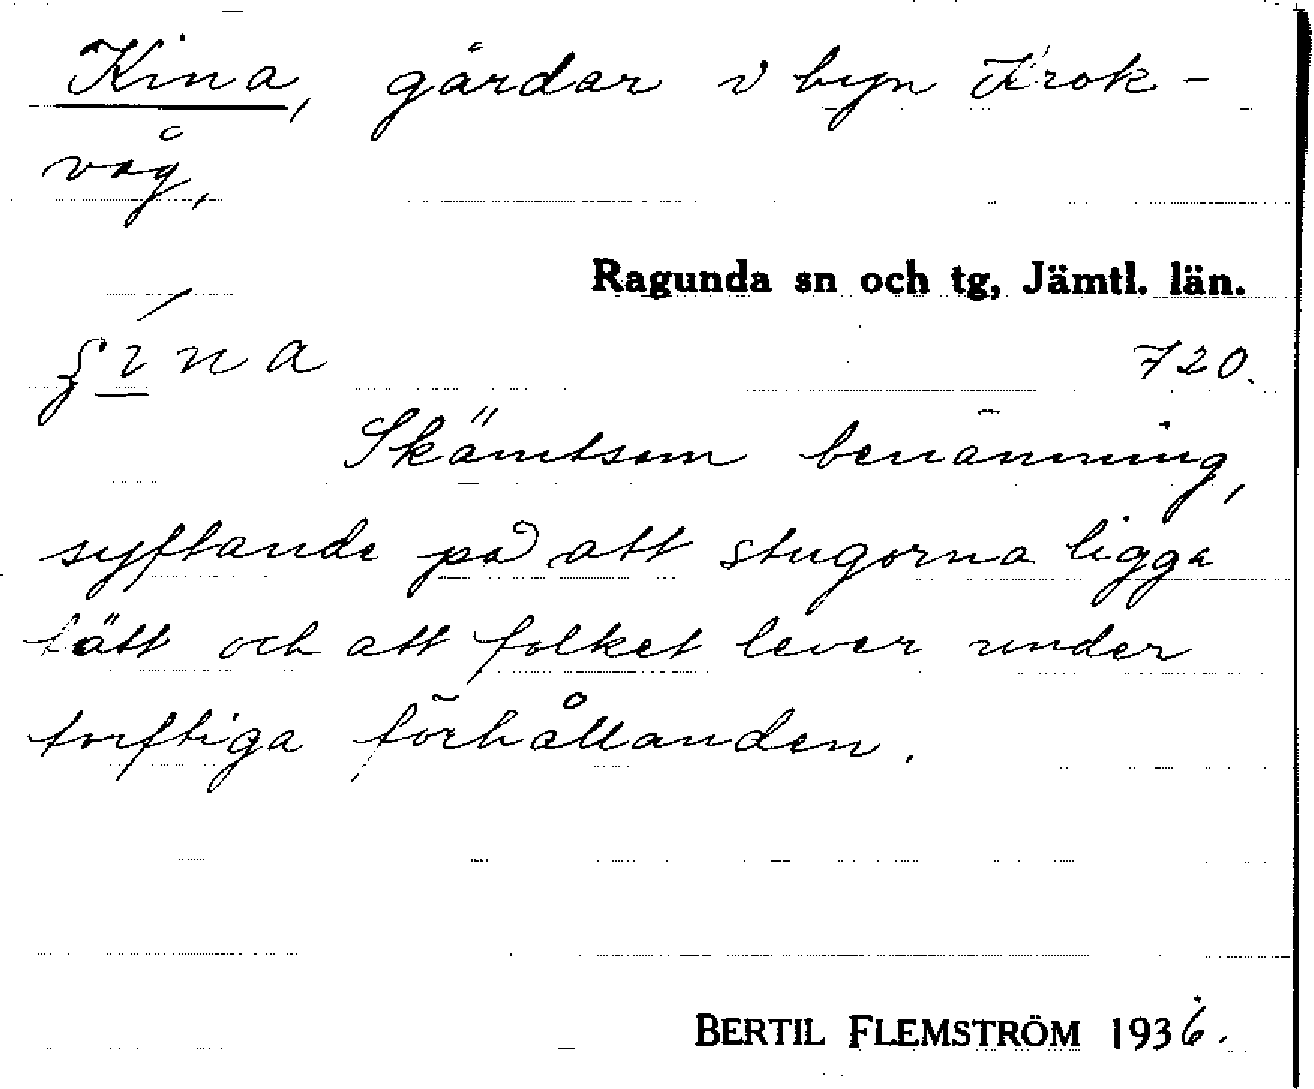 Kina, gårdar i byn Krok-
våg,
Ragunda sn och tg, Jämtl. län.
720.
Skämtsam benämning,
syftande på att stugorna ligga
tätt och att folket lever under
torftiga förhållanden.
BERTIL FLEMSTRÖM 1936.